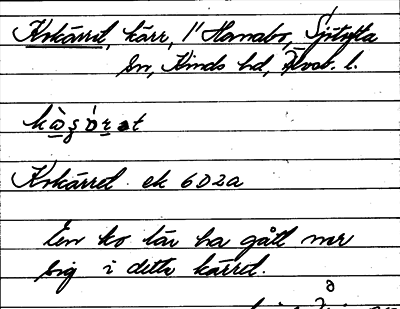 Kokärret, kärr, 1" Hanabo, Sjötofta
sn, Kinds hd, Älvsb. l.
Kokärret ek 602a
En ko lär ha gått ner
sig i detta kärret.